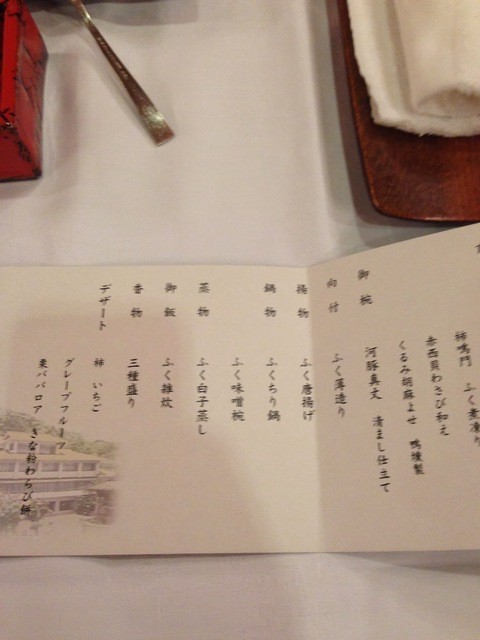 柿鳴門 ふく煮凍り
赤西貝わさび和え
くるみ胡麻よせ 鴨燻製
御椀
河豚真丈 清まし仕立て
向付 ふく薄造り
揚物 ふく唐揚げ
鍋物 ふくちり鍋
ふく味噌椀
蒸物 ふく白子蒸し
御飯 ふく雑炊
香物 三種盛り
デザート 柿 いちご
グレープフルーツ
栗ババロア きな粉わらび餅